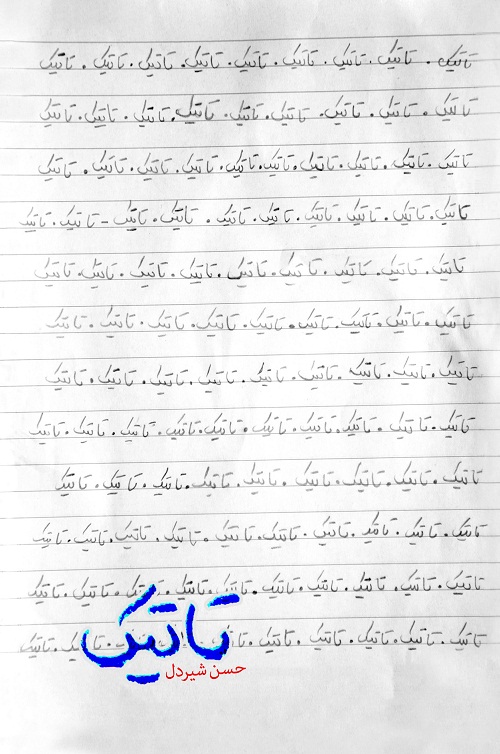 تاتیک . تاتیک . تاتیک . تاتیک . تاتیک . تاتیک . تاتیک . تاتیک . تاتیک
تاتیک . تاتیک . تاتیک . تاتیک . تاتیک . تاتیک . تاتیک . تاتیک . تاتیک
تاتیک . تاتیک . تاتیک . تاتیک . تاتیک . تاتیک . تاتیک . تاتیک . تاتیک . تاتیک
تاتیک . تاتیک . تاتیک . تاتیک . تاتیک . تاتیک . تاتیک . تاتیک - تاتیک . تاتیک
تاتیک . تاتیک . تاتیک . تاتیک . تاتیک . تاتیک . تاتیک . تاتیک . تاتیک
تاتیک . تاتیک . تاتیک . تاتیک . تاتیک . تاتیک . تاتیک . تاتیک . تاتیک
تاتیک . تاتیک . تاتیک . تاتیک . تاتیک . تاتیک . تاتیک . تاتیک . تاتیک
تاتیک . تاتیک . تاتیک . تاتیک . تاتیک . تاتیک . تاتیک . تاتیک . تاتیک . تاتیک
تاتیک . تاتیک . تاتیک . تاتیک . تاتیک . تاتیک . تاتیک . تاتیک . تاتیک
تاتیک . تاتیک . تاتیک . تاتیک . تاتیک . تاتیک . تاتیک . تاتیک . تاتیک . تاتیک
تاتیک . تاتیک . تاتیک . تاتیک . تاتیک . تاتیک . تاتیک . تاتیک . تاتیک . تاتیک
تاتیک . تاتیک . تاتیک . تاتیک . تاتیک . تاتیک . تاتیک
تاتیک
حسن شیردل